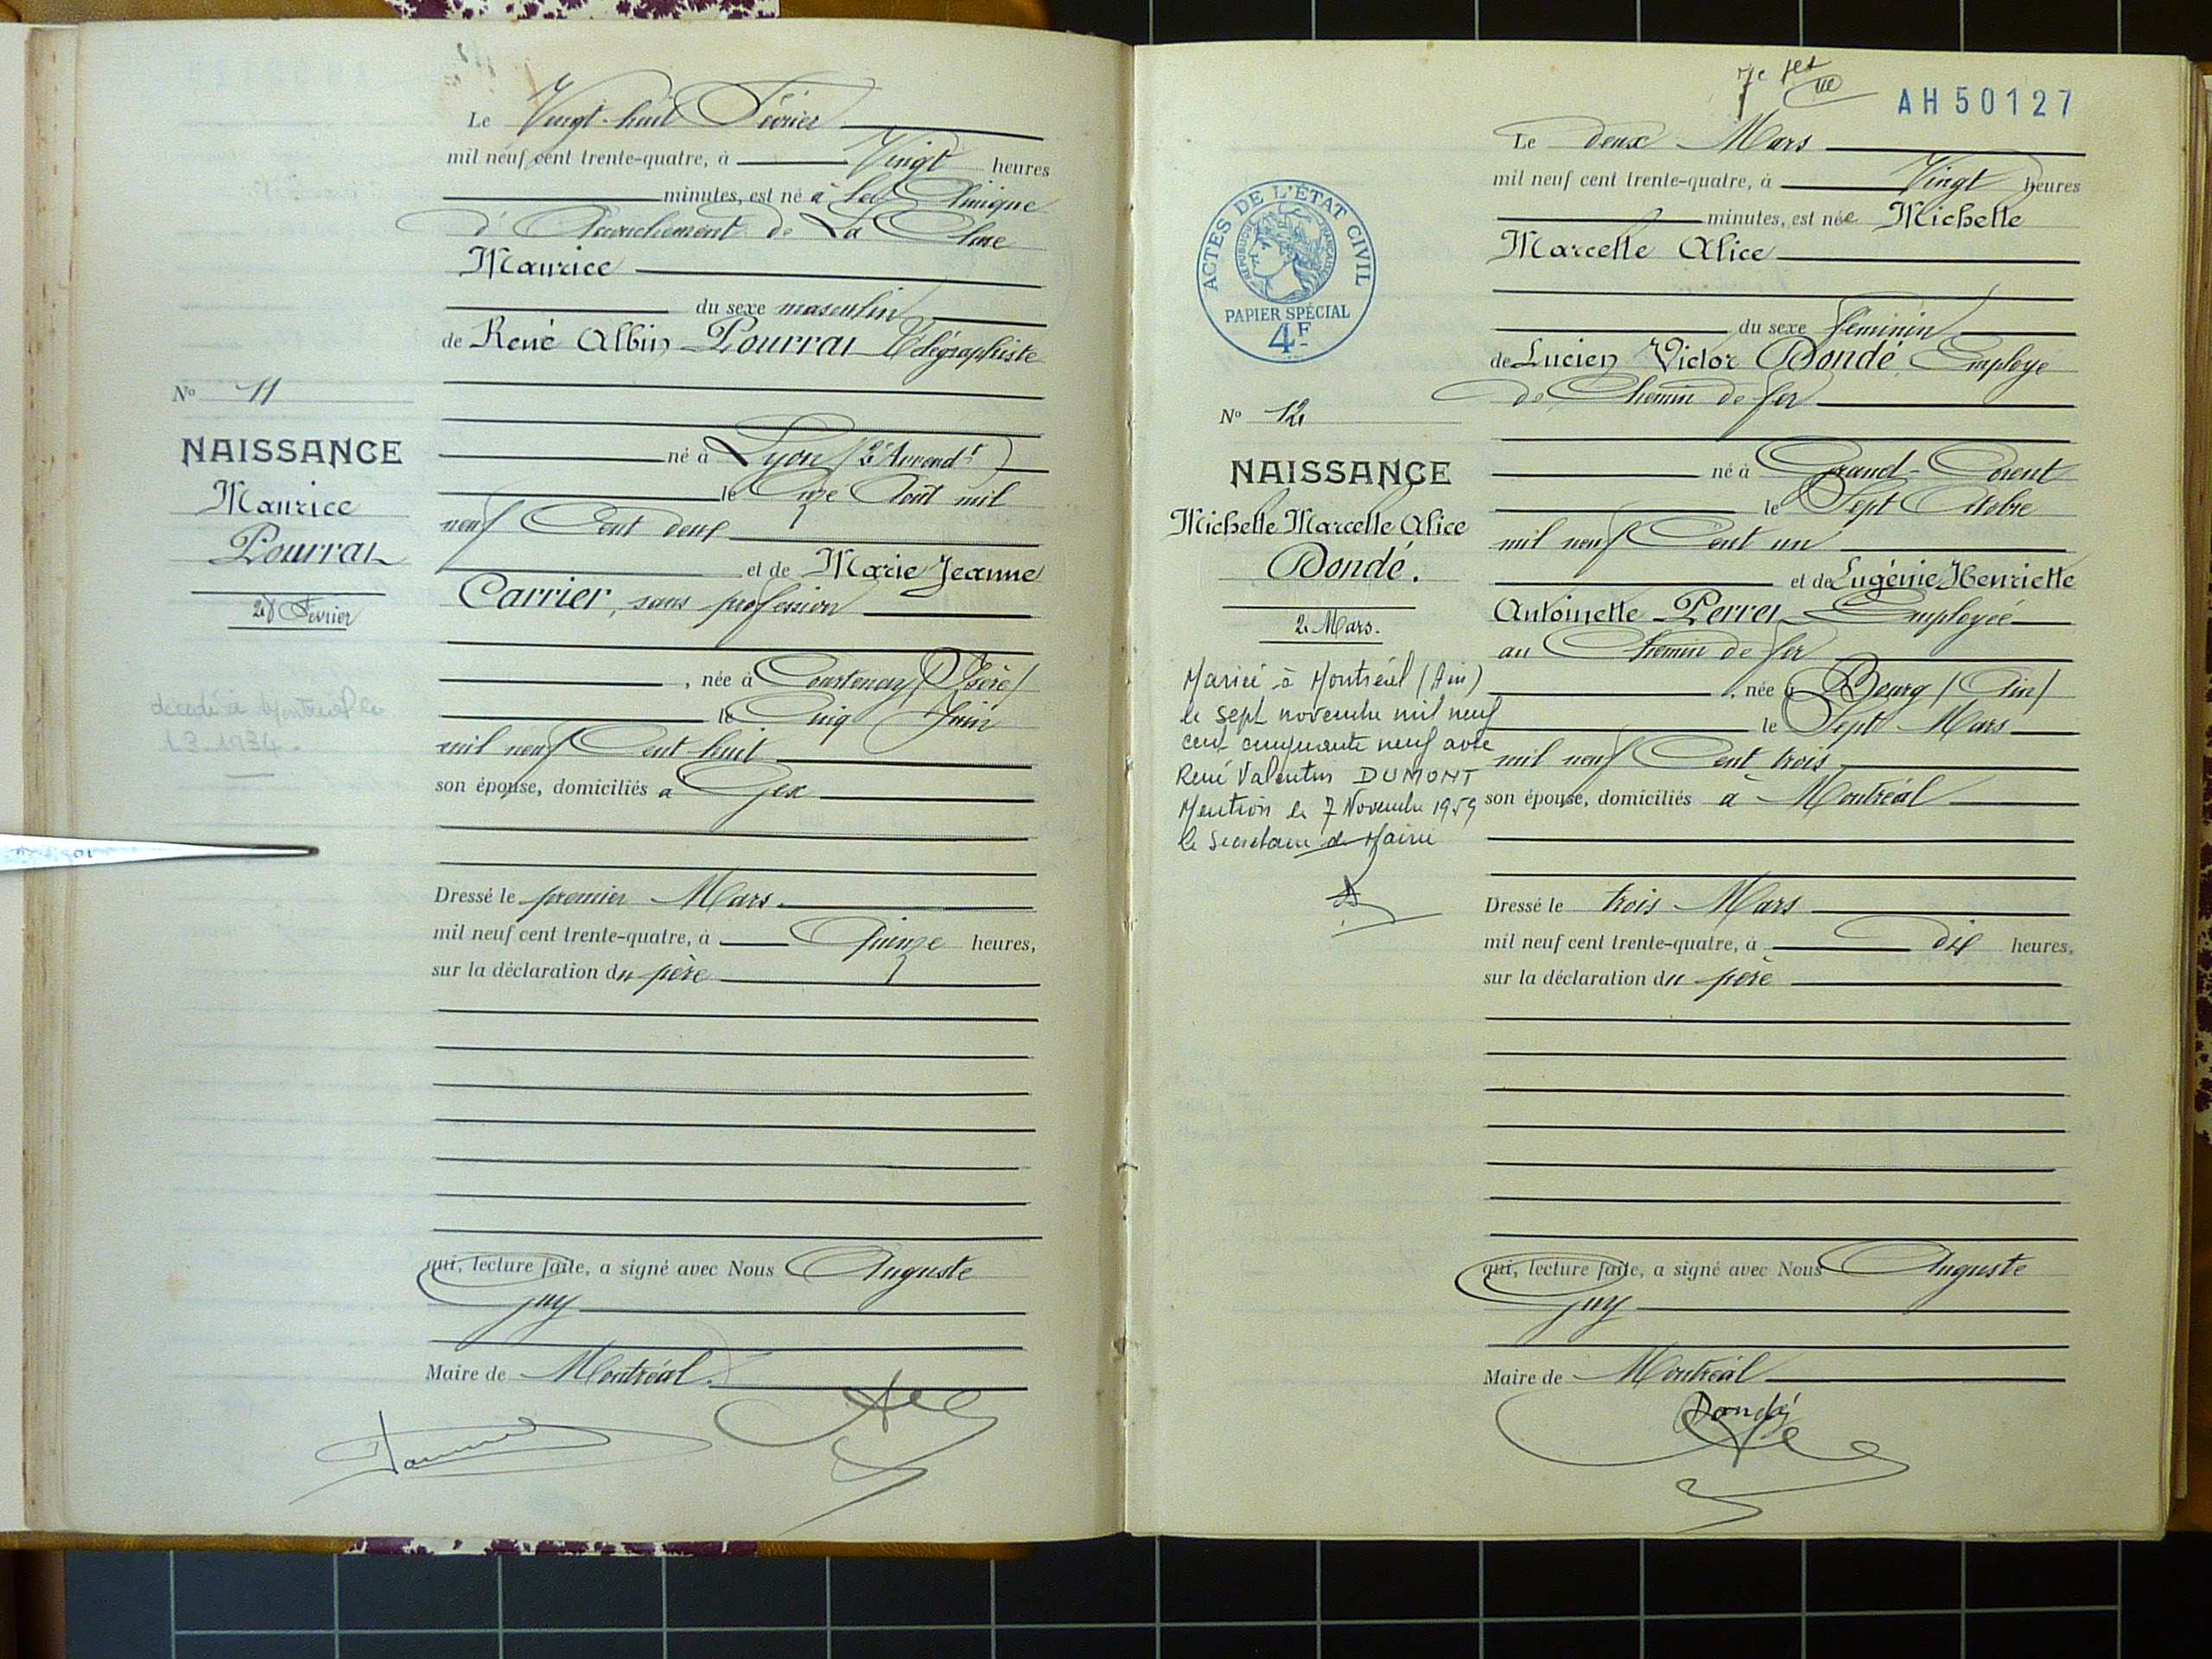 Le Vingt-huit Février
mil neuf cent trente-quatre, à Vingt heures
minutes, est né à la Clinique
d'Accouchement de La Cluse
Maurice
du sexe masculin
de René Albin Pourraz Télégraphiste
né à Lyon (2e Arrondt)
le Onze Août mil
neuf Cent deux
et de Marie Jeanne
Carrier, sans profession
, née à Courtenay (Isère)
le Cinq Juin
mil neuf Cent huit
son épouse, domiciliés à Gex
Dressé le premier Mars
mil neuf cent trente-quatre, à Quinze heures,
sur la déclaration du père
qui, lecture faite, a signé avec Nous Auguste
Guy
Maire de Montréal.
No 11
NAISSANCE
Maurice
Pourraz
28 Février
décédé à Montréal le
1.3.1934.
AH 50127
Le deux Mars
mil neuf cent trente-quatre, à Vingt heures
minutes, est née Michelle
Marcelle Alice
du sexe féminin
de Lucien Victor Dondé, Employé
de Chemin de fer
né à Grand-Corent
le Sept Octobre
mil neuf Cent un
et de Eugénie Henriette
Antoinette Perret Employée
au Chemin de fer
, née à Bourg (Ain)
le Sept Mars
mil neuf Cent trois
son épouse, domiciliés à Montréal
Dressé le trois Mars
mil neuf cent trente-quatre, à dix heures,
sur la déclaration du père
qui, lecture faite, a signé avec Nous Auguste
Guy
Maire de Montréal
Dondé
ACTES DE L'ÉTAT CIVIL
RÉPUBLIQUE FRANÇAISE
PAPIER SPÉCIAL
4F
No 12
NAISSANCE
Michelle Marcelle Alice
Dondé.
2 Mars.
Mariée à Montréal (Ain)
le sept novembre mil neuf
cent cinquante neuf avec
René Valentin DUMONT
Mention le 7 Novembre 1959
le Secrétaire de Mairie